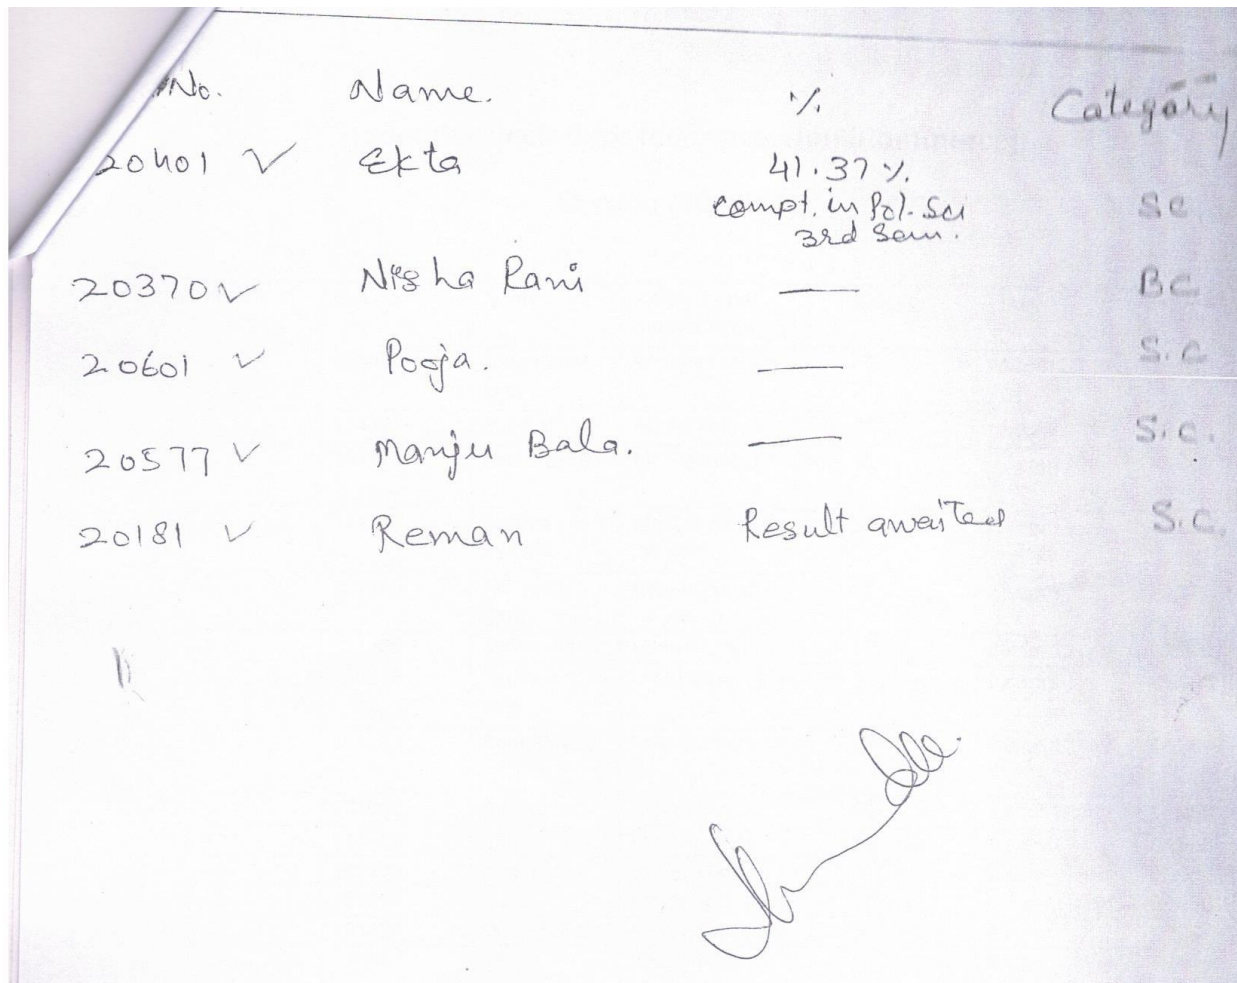 No. Name. % Category
20401 ✓ Ekta 41.37 %.
compt. in Pol. Sci SC
3rd Sem.
20370 ✓ Nisha Rani — BC
20601 ✓ Pooja. — S.C
20577 ✓ Manju Bala. — S.C.
20181 ✓ Reman Result awaited S.C.